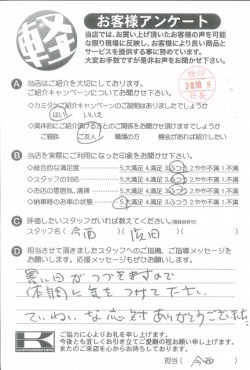 軽
お客様アンケート
当店では、お買い上げ頂いたお客様の声を可能
な限り現場に反映し、お客様により良い商品と
サービスを提供する事に努めています。
大変お手数ですが是非お声をお聞かせ下さい。
A 当店はご紹介を大切にしております。
ご紹介キャンペーンについてお聞かせ下さい。
はい いいえ
ご親族 ご友人 職場の方 機会があれば紹介したい
B 当店を実際にご利用になった印象をお聞かせ下さい。
◇総合的な満足度 5.大満足 4.満足 3.ふつう 2.やや不満 1.不満
◇スタッフの対応 5.大満足 4.満足 3.ふつう 2.やや不満 1.不満
◇お店の雰囲気、清掃 5.大満足 4.満足 3.ふつう 2.やや不満 1.不満
◇納車時のお車の状態 5.大満足 4.満足 3.ふつう 2.やや不満 1.不満
C 評価したいスタッフがいれば教えてください。
スタッフ名( 今西 )( )
D 担当させて頂きましたスタッフへのご指摘、ご指導メッセージを
お願いします。応援メッセージもぜひお願いします。
暑い日がつづきますので
体調に気をつけてください。
ていねいな応対ありがとうございました。
K
ご協力に心よりお礼を申し上げます。
今後とも宜しくお引き立てご愛顧の程お願い申し上げます。
またのご来店を心からお待ちしております。
担当( 今西 )